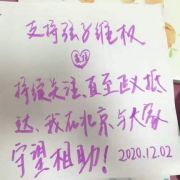 支持弦子维权
持续关注,直至正义抵
达,我在北京与大家
守望相助! 2020.12.02